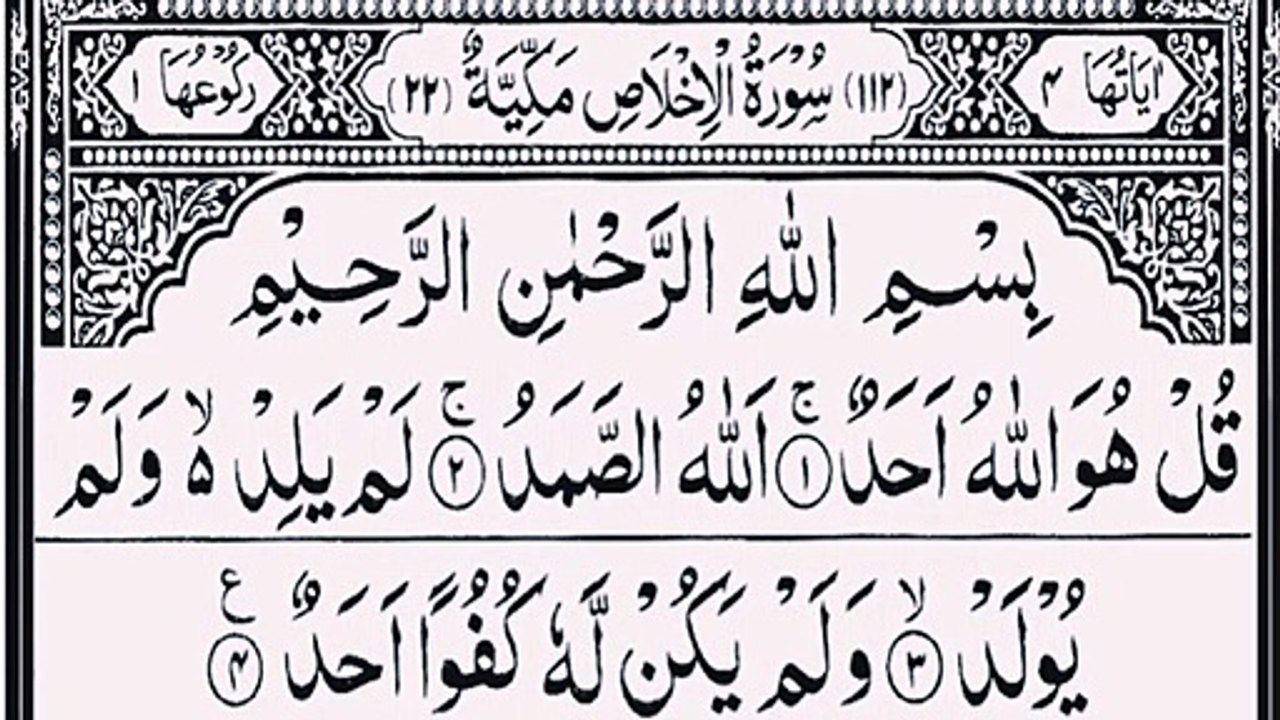 اٰيَاتُهَا ۴ (۱۱۲) سُوْرَةُ الْاِخْلَاصِ مَكِّيَّةٌ (۲۲) رُكُوْعُهَا ۱
بِسْمِ اللّٰهِ الرَّحْمٰنِ الرَّحِيْمِ
قُلْ هُوَ اللّٰهُ اَحَدٌ ۚ ۝۱ اَللّٰهُ الصَّمَدُ ۚ ۝۲ لَمْ يَلِدْ ۙ۵ وَلَمْ
يُوْلَدْ ۙ ۝۳ وَلَمْ يَكُنْ لَّهٗ كُفُوًا اَحَدٌ ۝۴ ع